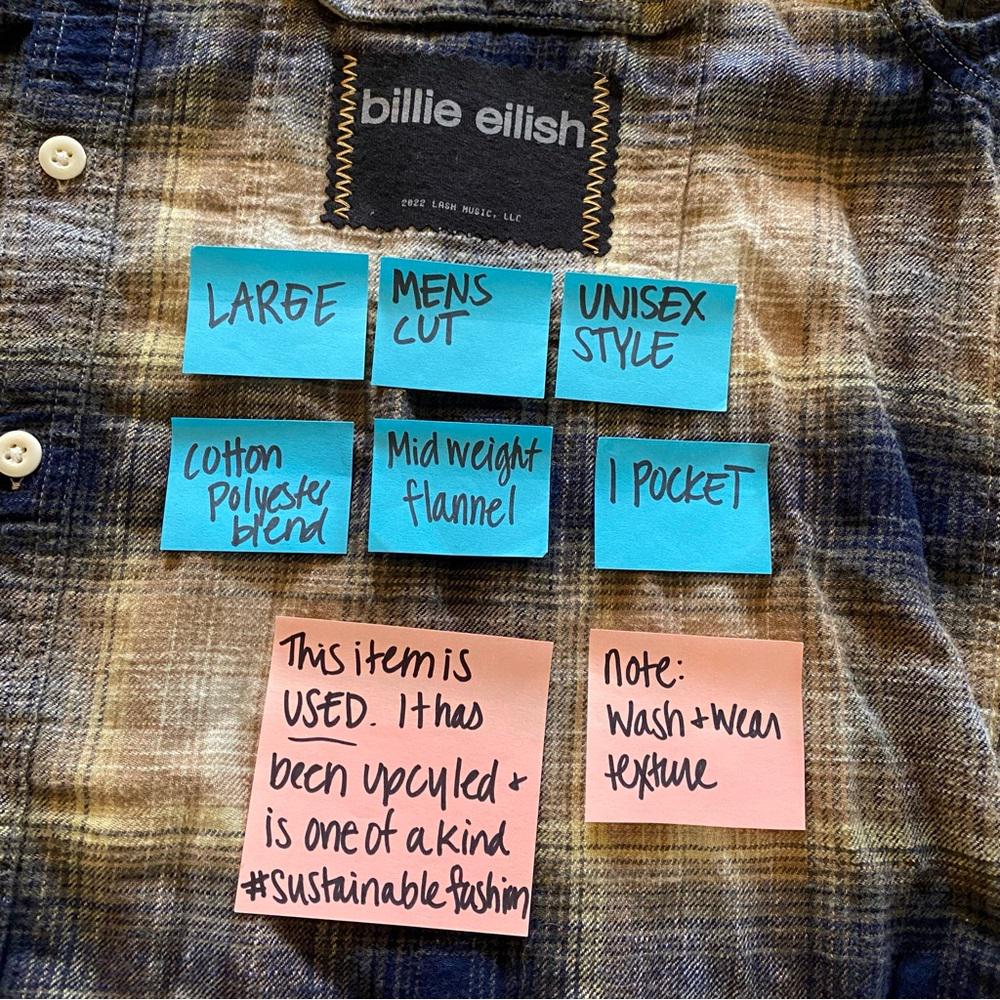 billie eilish
2022 LASH MUSIC, LLC
LARGE
MENS
CUT
UNISEX
STYLE
cotton
polyester
blend
Mid weight
flannel
1 POCKET
This item is
USED. It has
been upcyled +
is one of a kind
#sustainable fashion
note:
wash + wear
texture